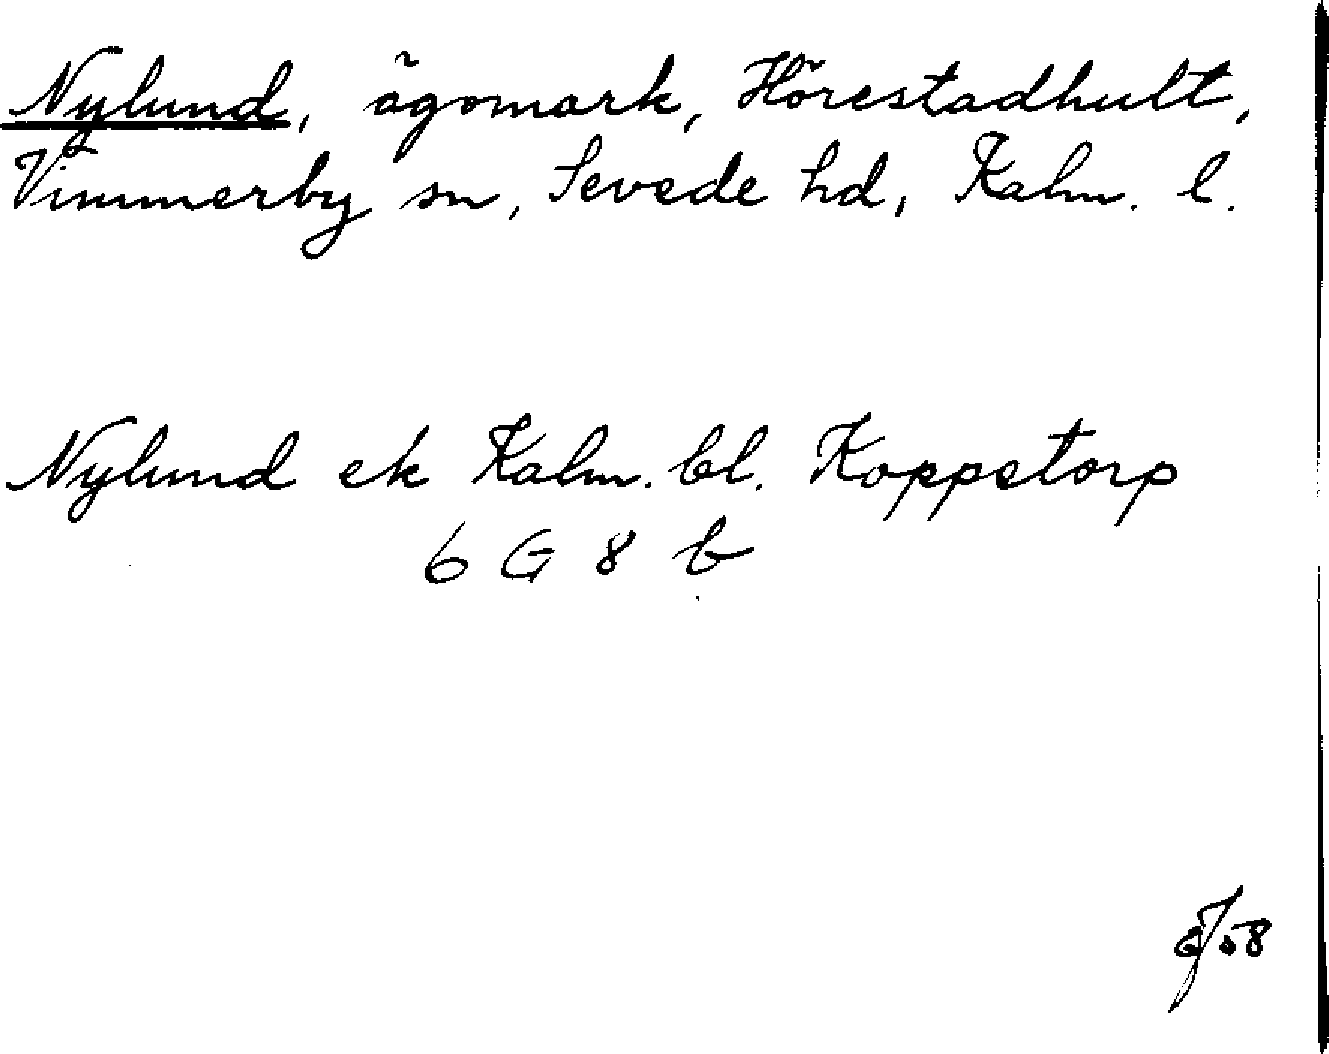 Nylund, ägomark, Hörestadhult,
Vimmerby sn, Sevede hd, Kalm. l.
Nylund ek Kalm. bl. Koppetorp
6 G 8 b